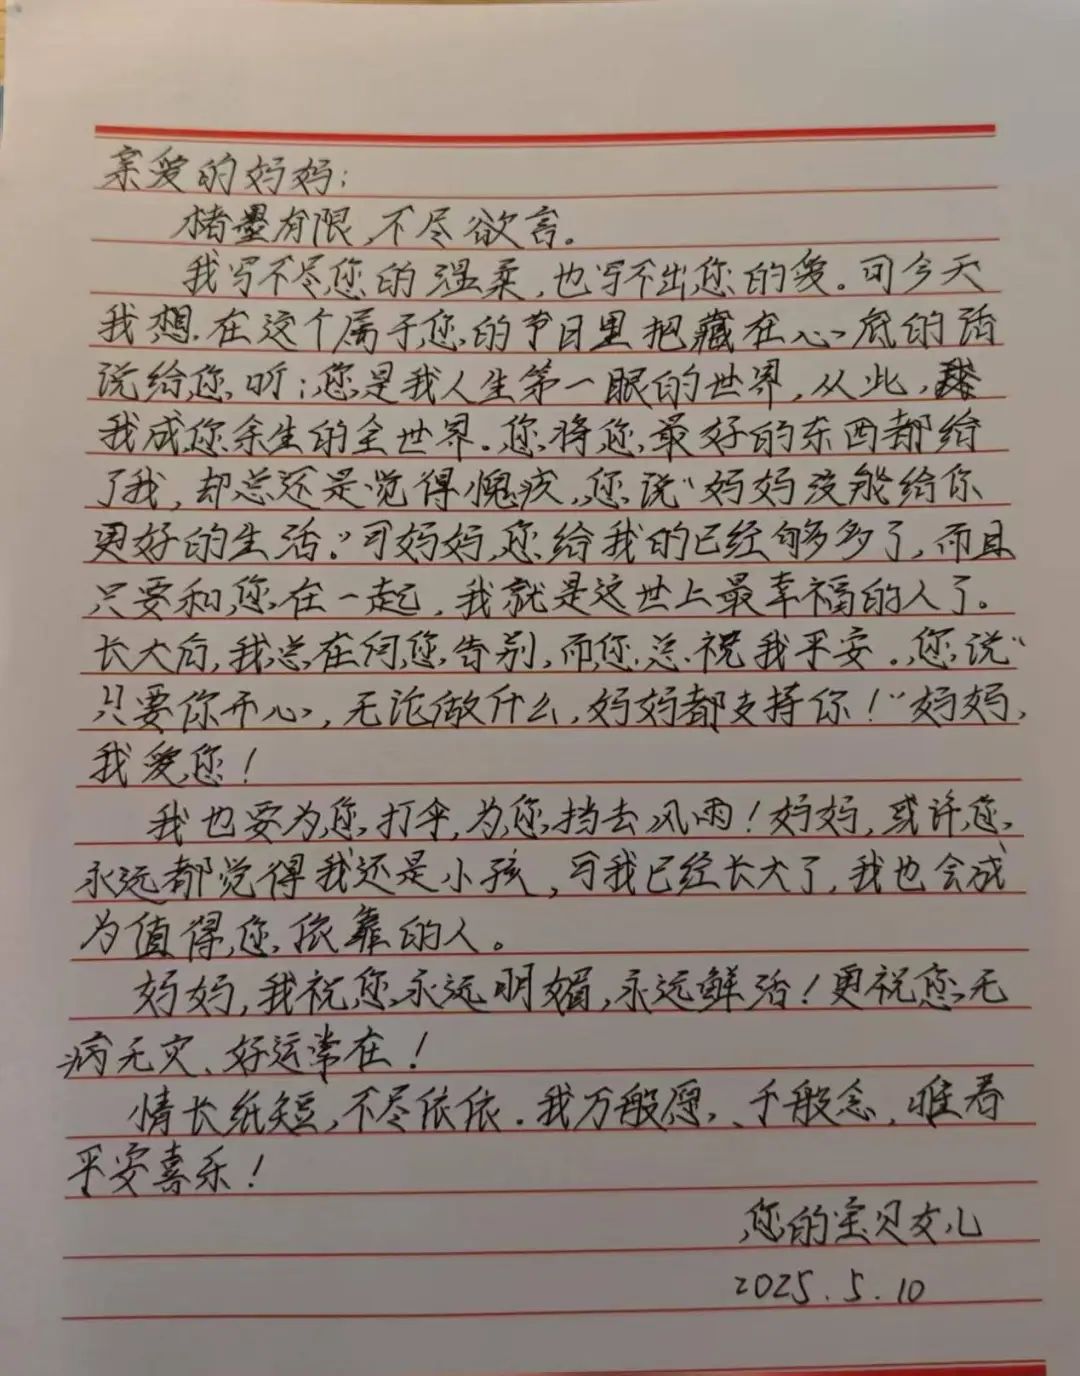 亲爱的妈妈：
楮墨有限，不尽欲言。
我写不尽您的温柔，也写不出您的爱。可今天
我想在这个属于您的节日里把藏在心底的话
说给您听：您是我人生第一眼的世界，从此，
我成您余生的全世界。您将您最好的东西都给
了我，却总还是觉得愧疚，您说“妈妈没能给你
更好的生活。”可妈妈，您给我的已经够多了，而且
只要和您在一起，我就是这世上最幸福的人了。
长大后，我总在向您告别，而您总祝我平安。您说“
只要你开心，无论做什么，妈妈都支持你！”妈妈，
我爱您！
我也要为您打伞，为您挡去风雨！妈妈，或许您
永远都觉得我还是小孩，可我已经长大了，我也会成
为值得您依靠的人。
妈妈，我祝您永远明媚，永远鲜活！更祝您无
病无灾、好运常在！
情长纸短，不尽依依。我万般愿、千般念，唯看
平安喜乐！
您的宝贝女儿
2025.5.10